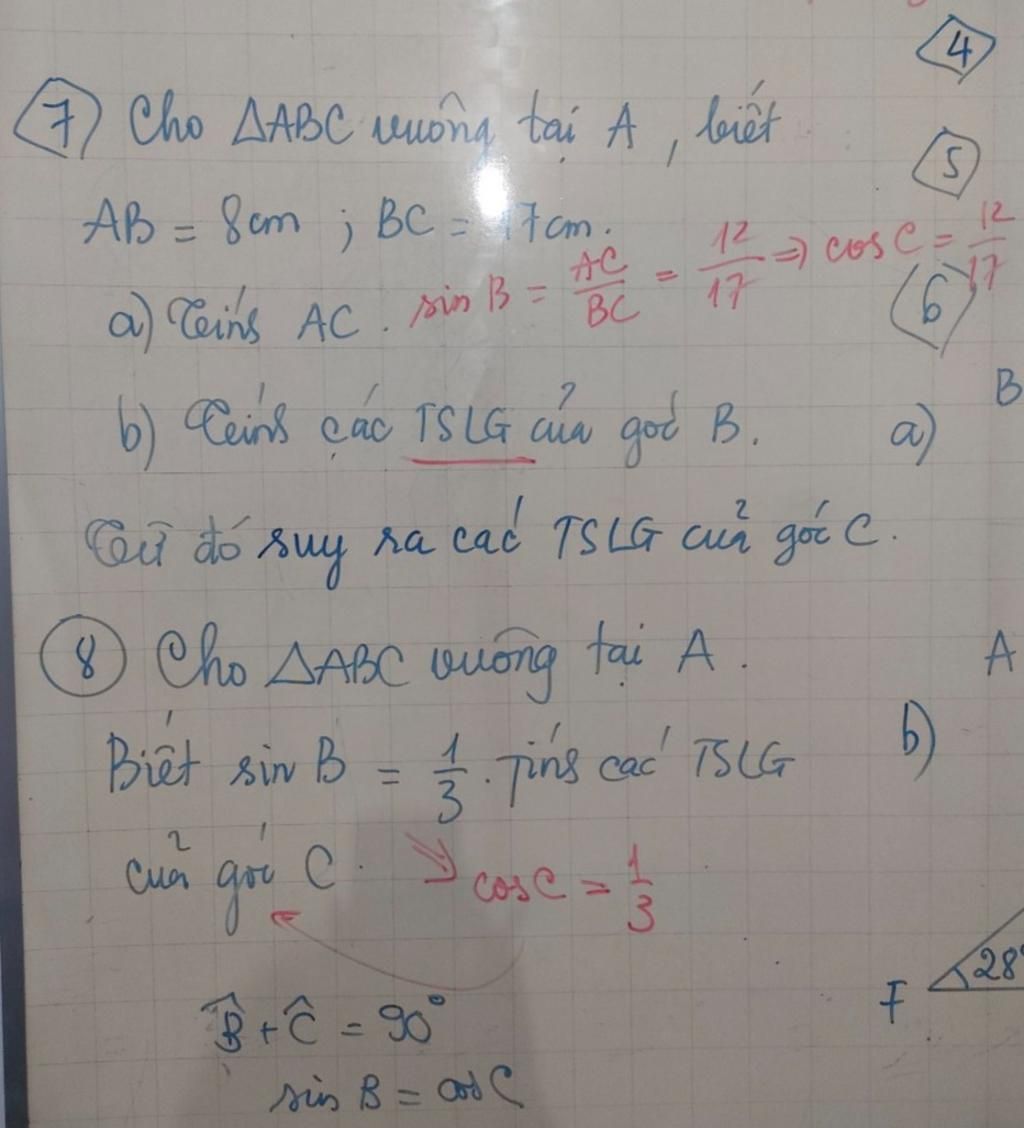 4
7 Cho △ABC vuông tại A, biết
5
AB = 8cm ; BC = 17cm.
a) Tính AC. sin B = AC/BC = 12/17 ⇒ cos C = 12/17
6
B
b) Tính các TSLG của góc B.
a)
Từ đó suy ra các TSLG của góc C.
8 Cho △ABC vuông tại A.
A
Biết sin B = 1/3. Tính các TSLG
b)
của góc C. ⇒ cos C = 1/3
28°
F
B̂ + Ĉ = 90°
sin B = cos C